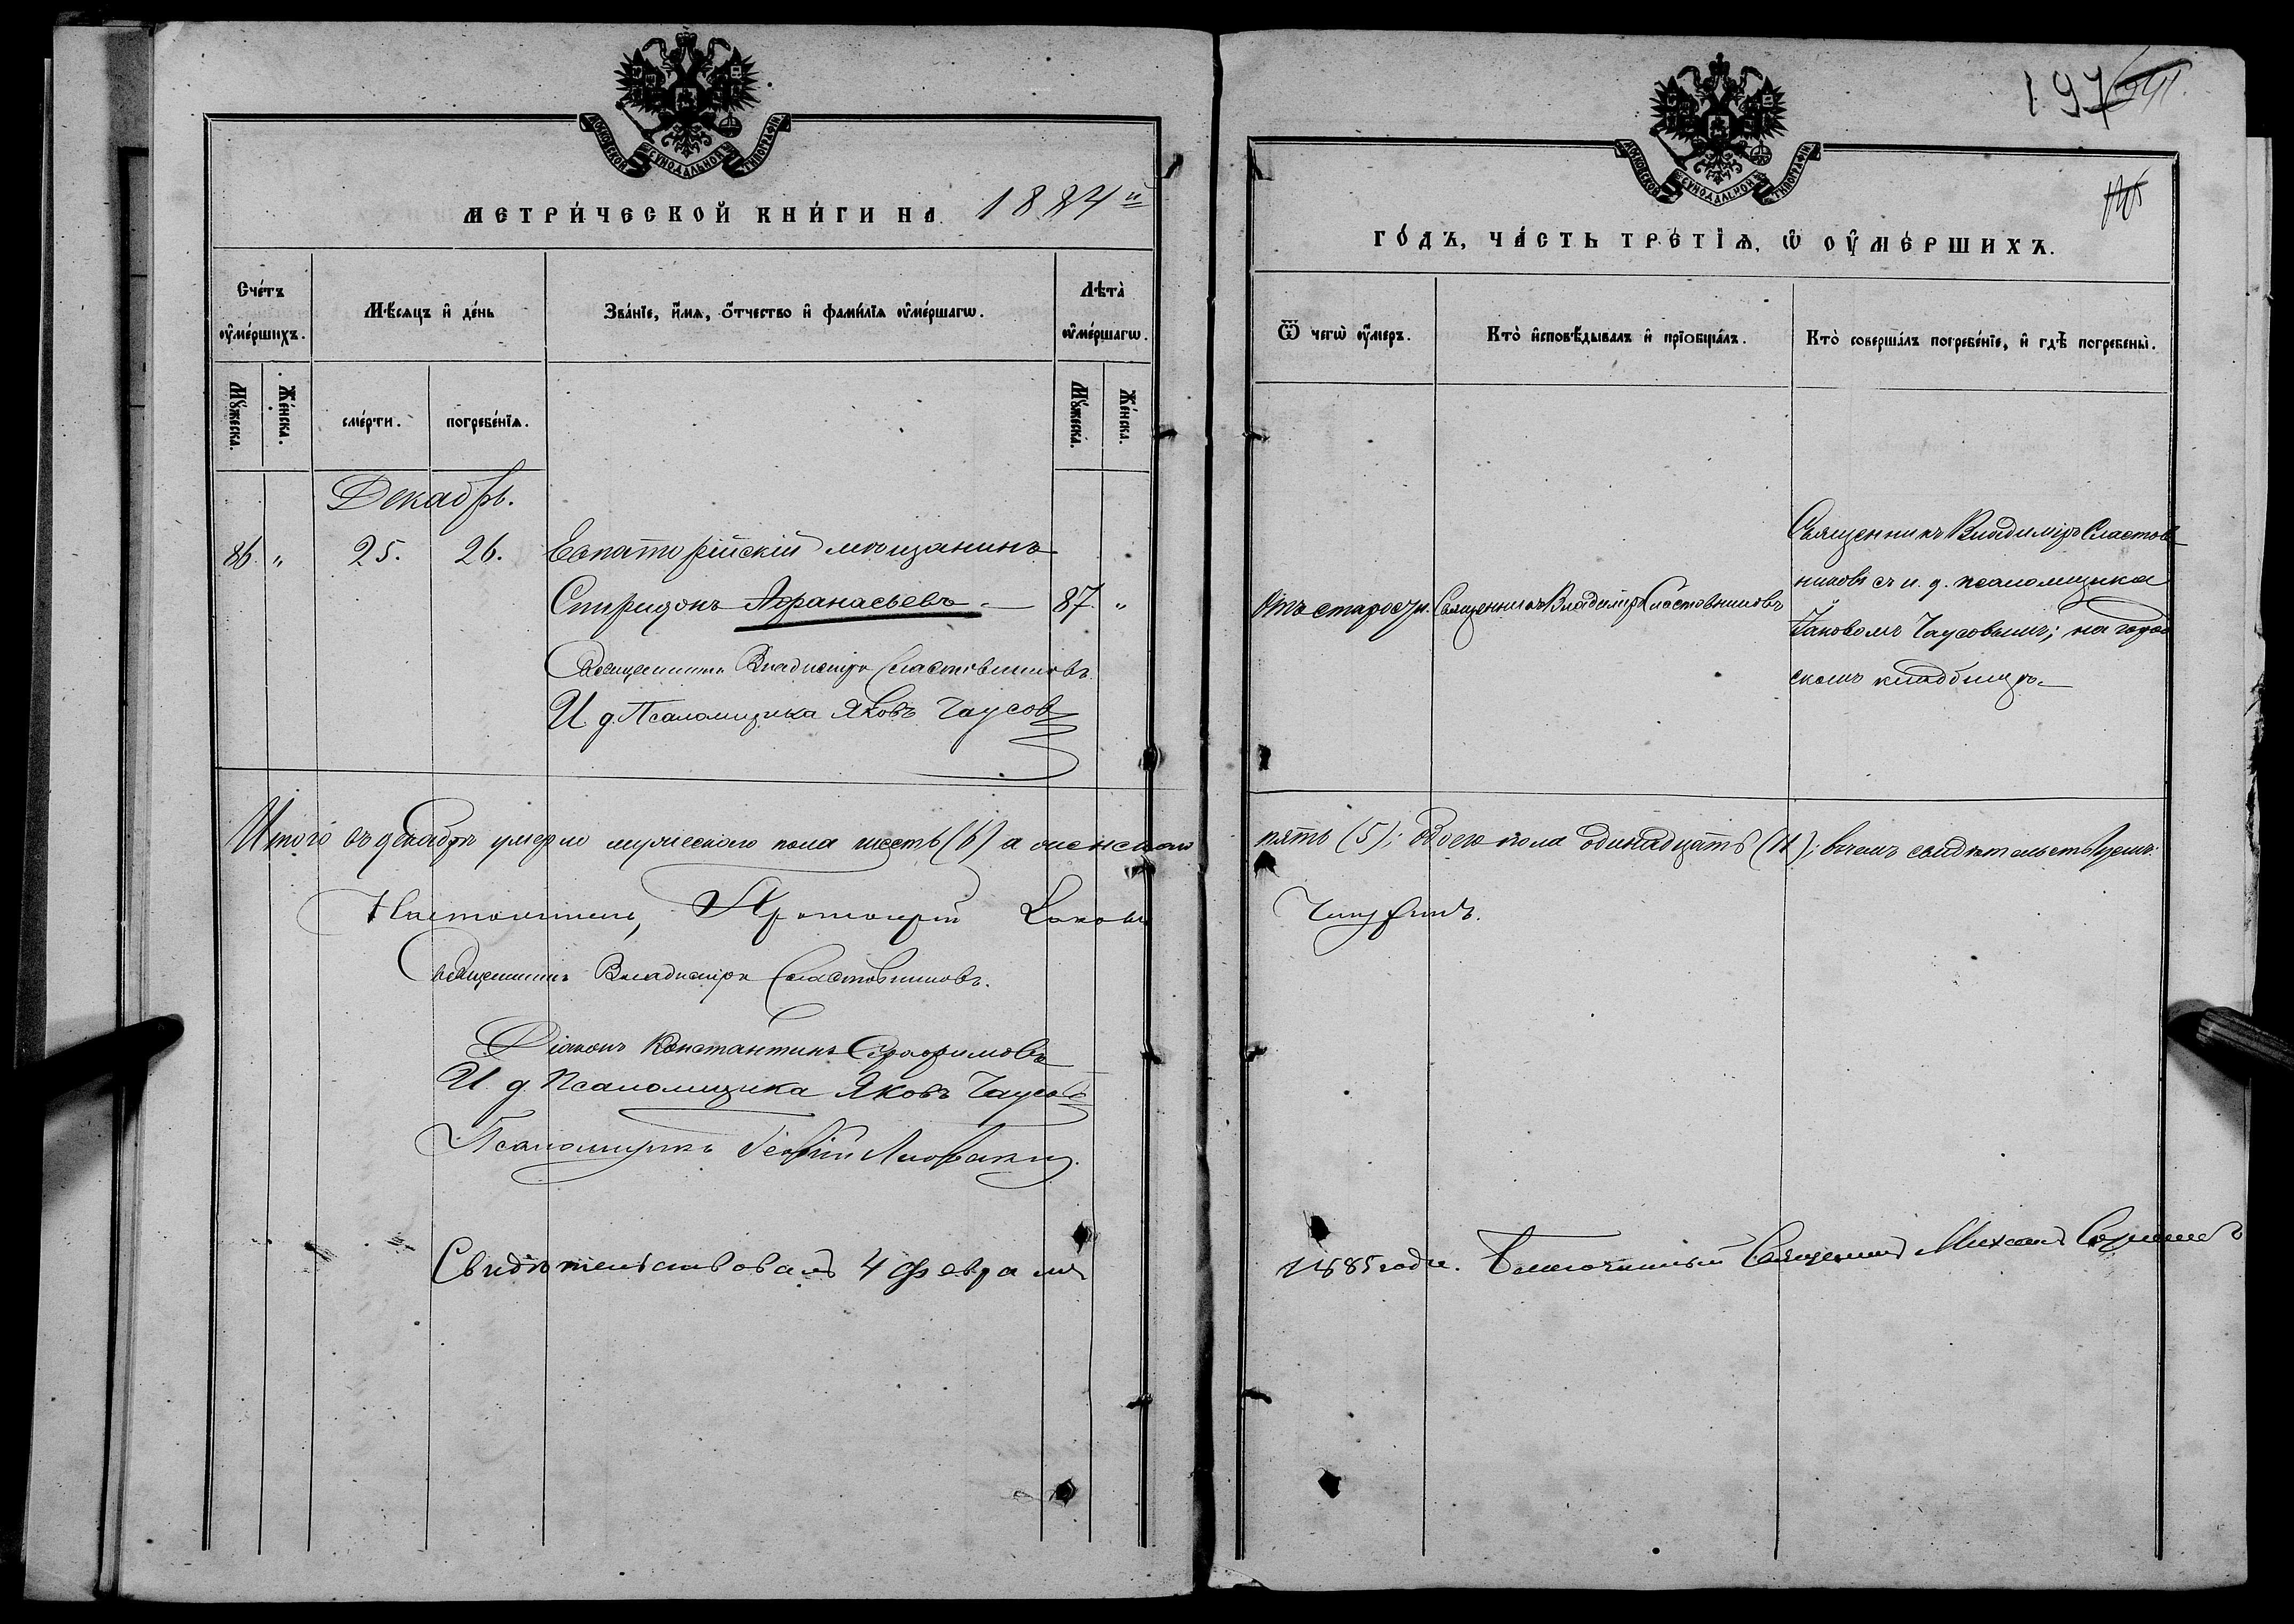 МОСКОВСКОЙ СѴНОДАЛЬНОЙ ТИПОГРАФІИ
МЕТРИ́ЧЕСКОЙ КНИ́ГИ НА 1884й
Сче́тъ ᲂу҆ме́ршихъ.
Мѣ́сяцъ и҆ де́нь
Зва́нїе, и҆́мѧ, ѻ҆́тчество и҆ фами́лїѧ ᲂу҆ме́ршагѡ.
Лѣта̀ ᲂу҆ме́ршагѡ.
Мꙋ́жеска.
Же́нска.
сме́рти.
погребе́нїѧ.
Мꙋ́жеска.
Же́нска.
Декабрь.
86. „ 25. 26. Евпаторійскій мѣщанинъ
Спиридонъ Аѳанасьевъ. — 87. „
Священникъ Владиміръ Сластовниковъ.
И. д. Псаломщика Яковъ Чаусовъ
Итого въ декабрѣ умерло мужескаго пола шесть (6) а женскаго
Настоятель, Протоіерей Іаковъ
Священникъ Владиміръ Сластовниковъ.
Діаконъ Константинъ Серафимовъ
И. д. Псаломщика Яковъ Чаусовъ
Псаломщикъ Георгій
Свидѣтельствовалъ 4 февраля
197
МОСКОВСКОЙ СѴНОДАЛЬНОЙ ТИПОГРАФІИ
ГО́ДЪ, ЧА́СТЬ ТРЕ́ТЇѦ, Ѡ҆ ОУ҆МЕ́РШИХЪ.
Ѿ чегѡ̀ ᲂу҆́меръ.
Кто̀ и҆сповѣ́дывалъ и҆ прїобща́лъ.
Кто̀ соверша́лъ погребе́нїе, и҆ гдѣ̀ погребены̀.
Отъ старости.
Священникъ Владиміръ Сластовниковъ
Священникъ Владиміръ Сластов-
никовъ съ и. д. псаломщика
Іаковомъ Чаусовымъ; на город-
скомъ кладбищѣ.
пять (5); обоего пола одинадцать (11); въ чемъ свидѣтельствуемъ:
Чепуринъ.
1885 года. Благочинный Священникъ Михаилъ